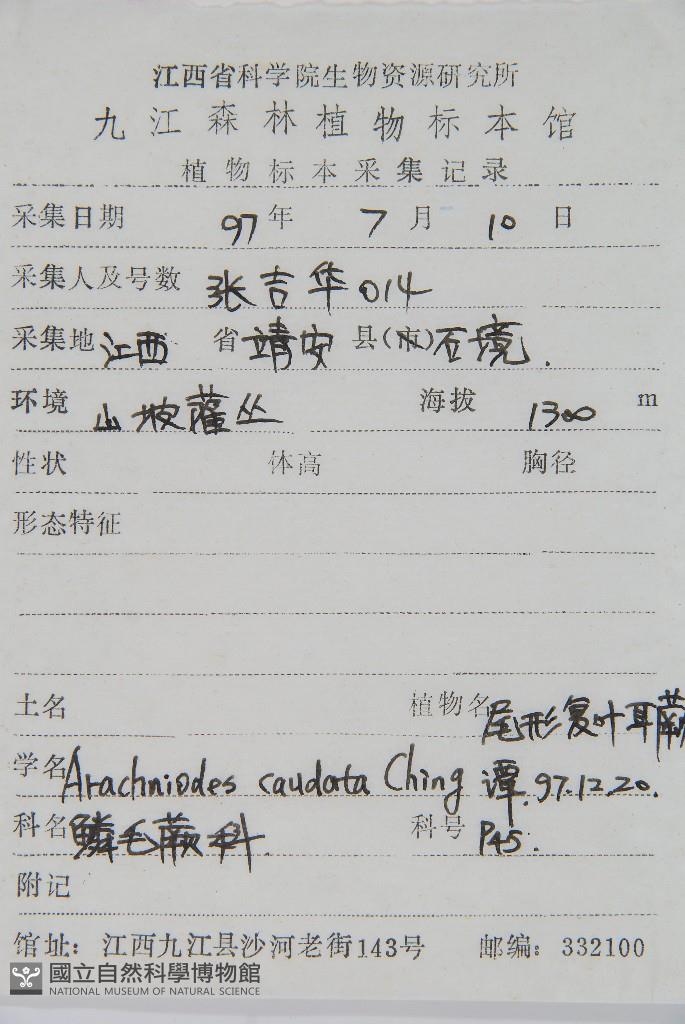 江西省科学院生物资源研究所
九江森林植物标本馆
植物标本采集记录
采集日期 97 年 7 月 10 日
采集人及号数 张吉华 014
采集地 江西 省 靖安 县(市) 石境.
环境 山坡灌丛 海拔 1300 m
性状 体高 胸径
形态特征
土名 植物名 尾形复叶耳蕨
学名 Arachniodes caudata Ching 谭.97.12.20.
科名 鳞毛蕨科 科号 P45.
附记
馆址：江西九江县沙河老街143号 邮编：332100
國立自然科學博物館
NATIONAL MUSEUM OF NATURAL SCIENCE